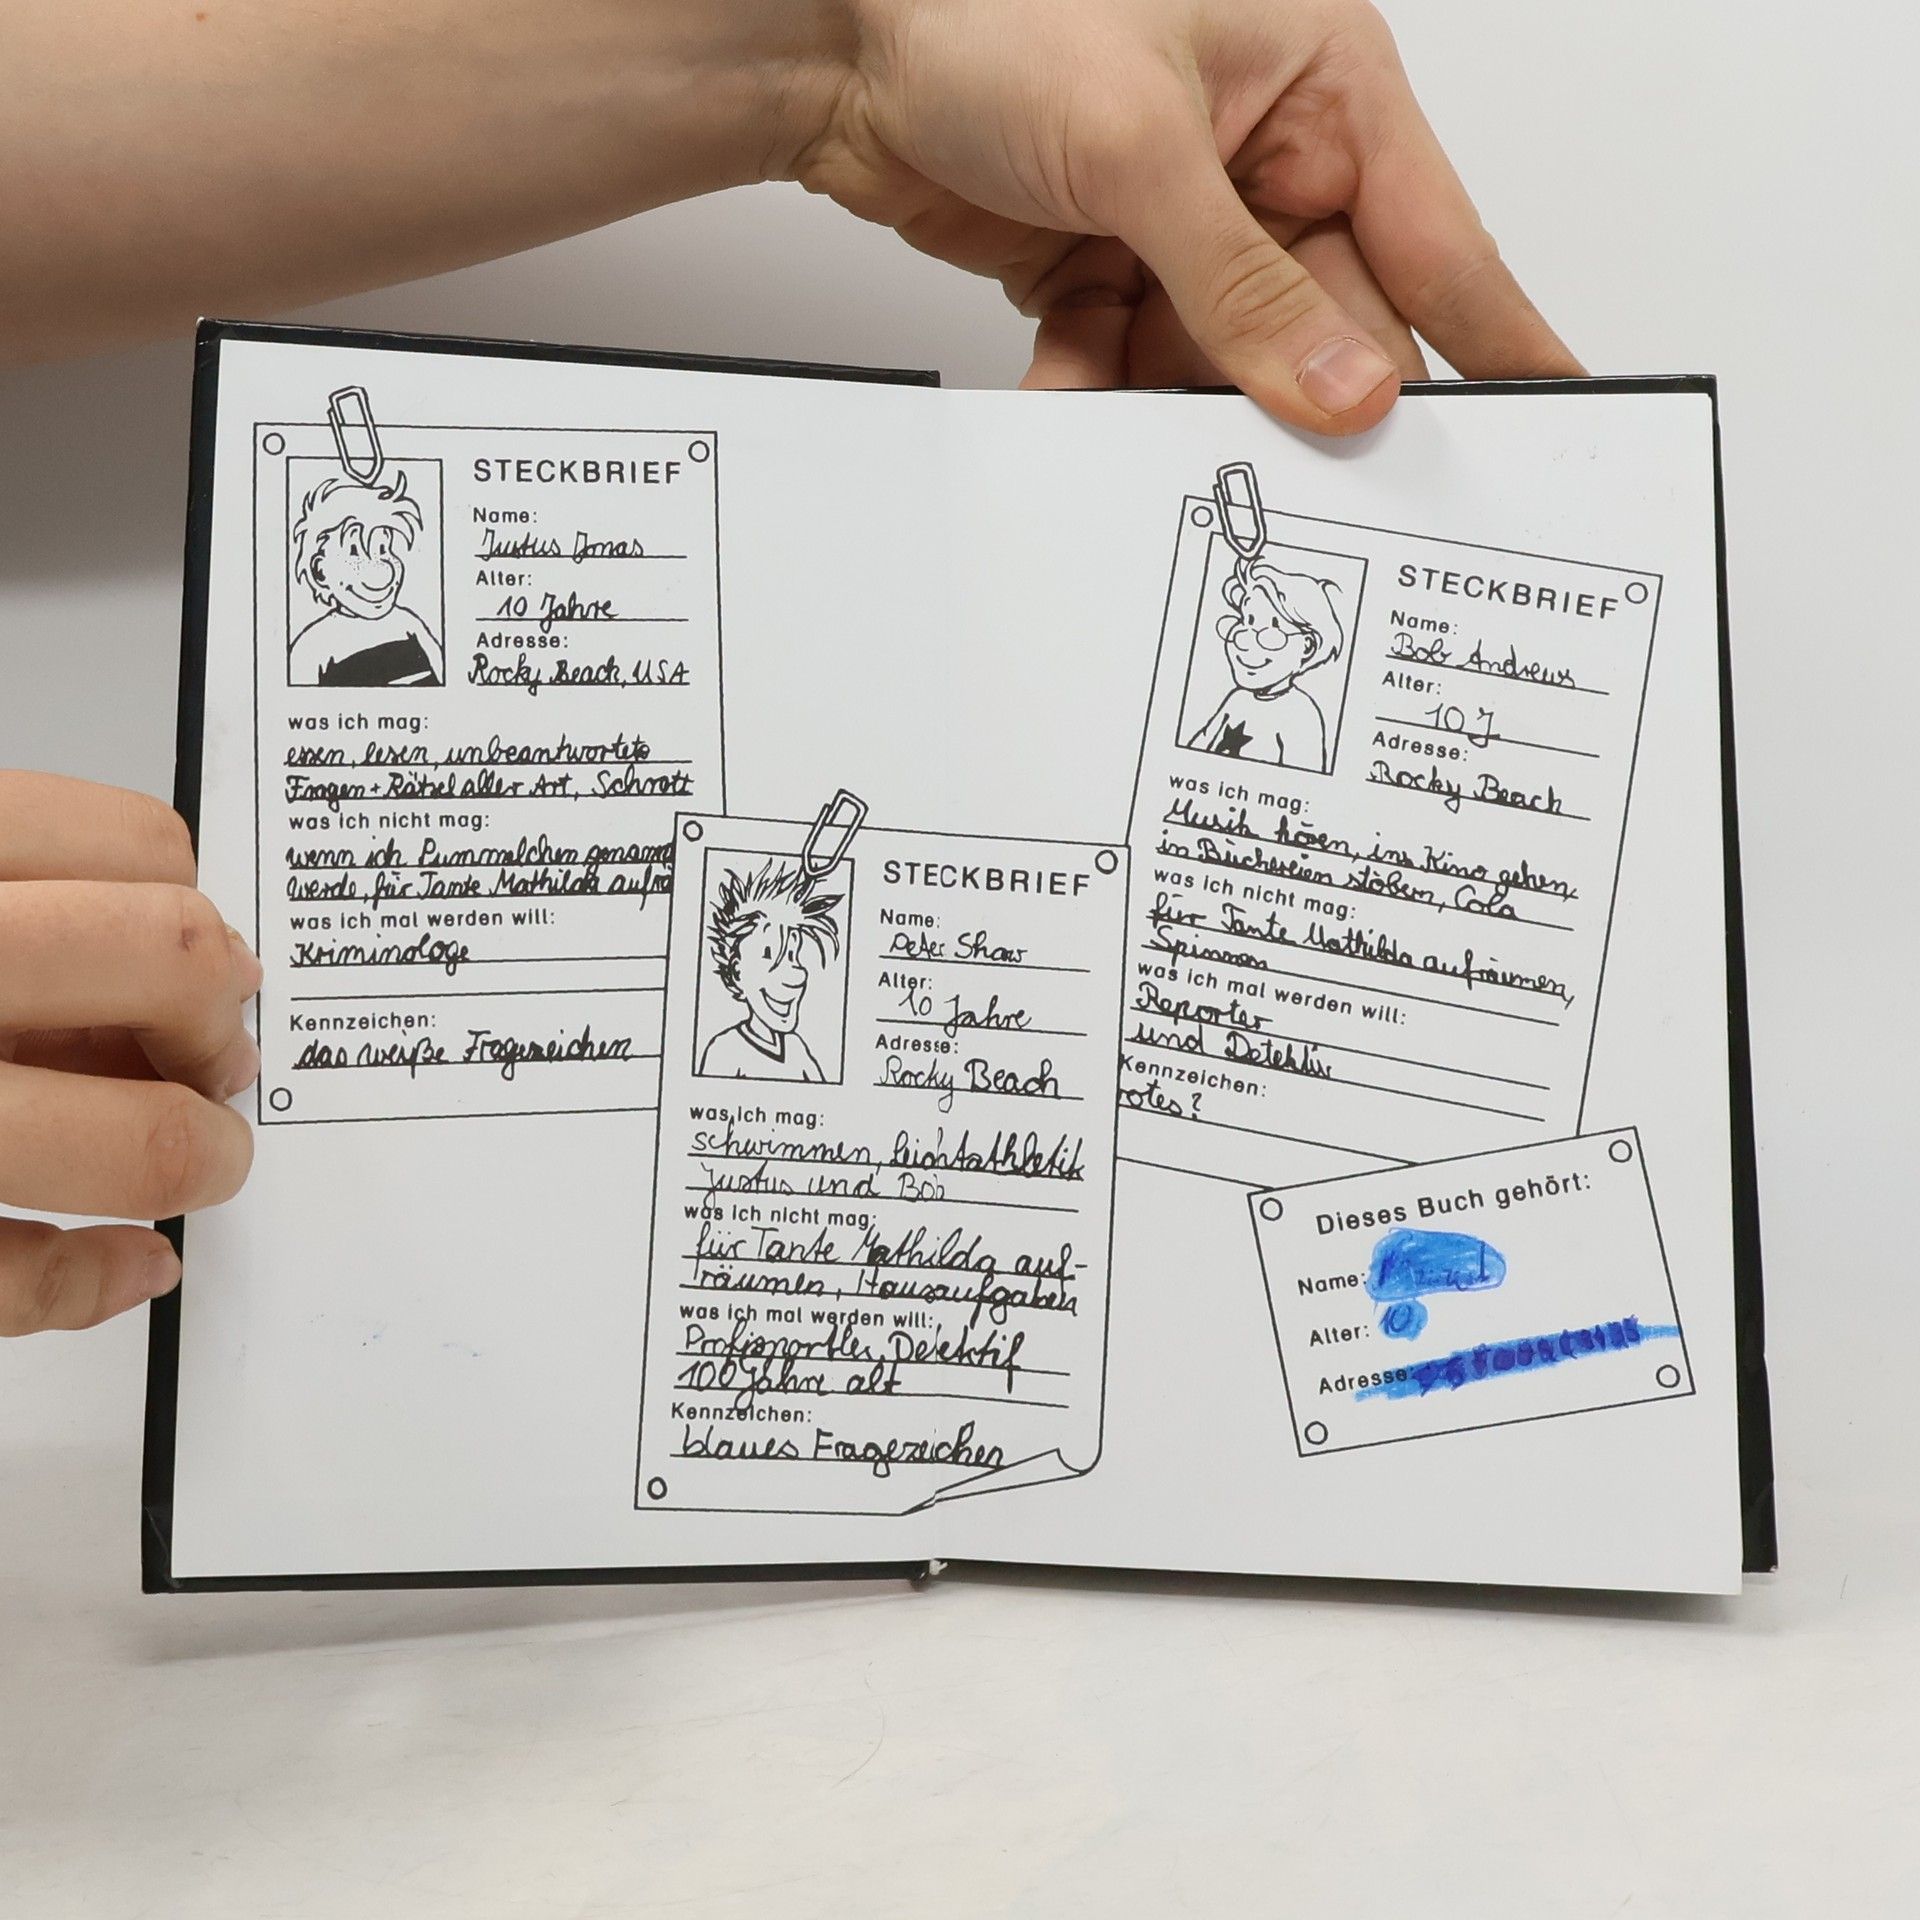 STECKBRIEF
Name:
Justus Jonas
Alter:
10 Jahre
Adresse:
Rocky Beach, USA
was ich mag:
essen, lesen, unbeantwortete
Fragen + Rätsel aller Art, Schrott
was ich nicht mag:
wenn ich Pummelchen genannt
werde, für Tante Mathilda aufrä
was ich mal werden will:
Kriminologe
Kennzeichen:
das weiße Fragezeichen
STECKBRIEF
Name:
Peter Shaw
Alter:
10 Jahre
Adresse:
Rocky Beach
was ich mag:
schwimmen, Leichtathletik
Justus und Bob
was ich nicht mag:
für Tante Mathilda auf-
räumen, Hausaufgaben
was ich mal werden will:
Profisportler, Detektif
100 Jahre alt
Kennzeichen:
blaues Fragezeichen
STECKBRIEF
Name:
Bob Andrews
Alter:
10 J
Adresse:
Rocky Beach
was ich mag:
Musik hören, ins Kino gehen,
in Büchereien stöbern, Cola
was ich nicht mag:
für Tante Mathilda aufräumen,
Spinnen
was ich mal werden will:
Reporter
und Detektiv
Kennzeichen:
rotes?
Dieses Buch gehört:
Name:
Alter: 10
Adresse: